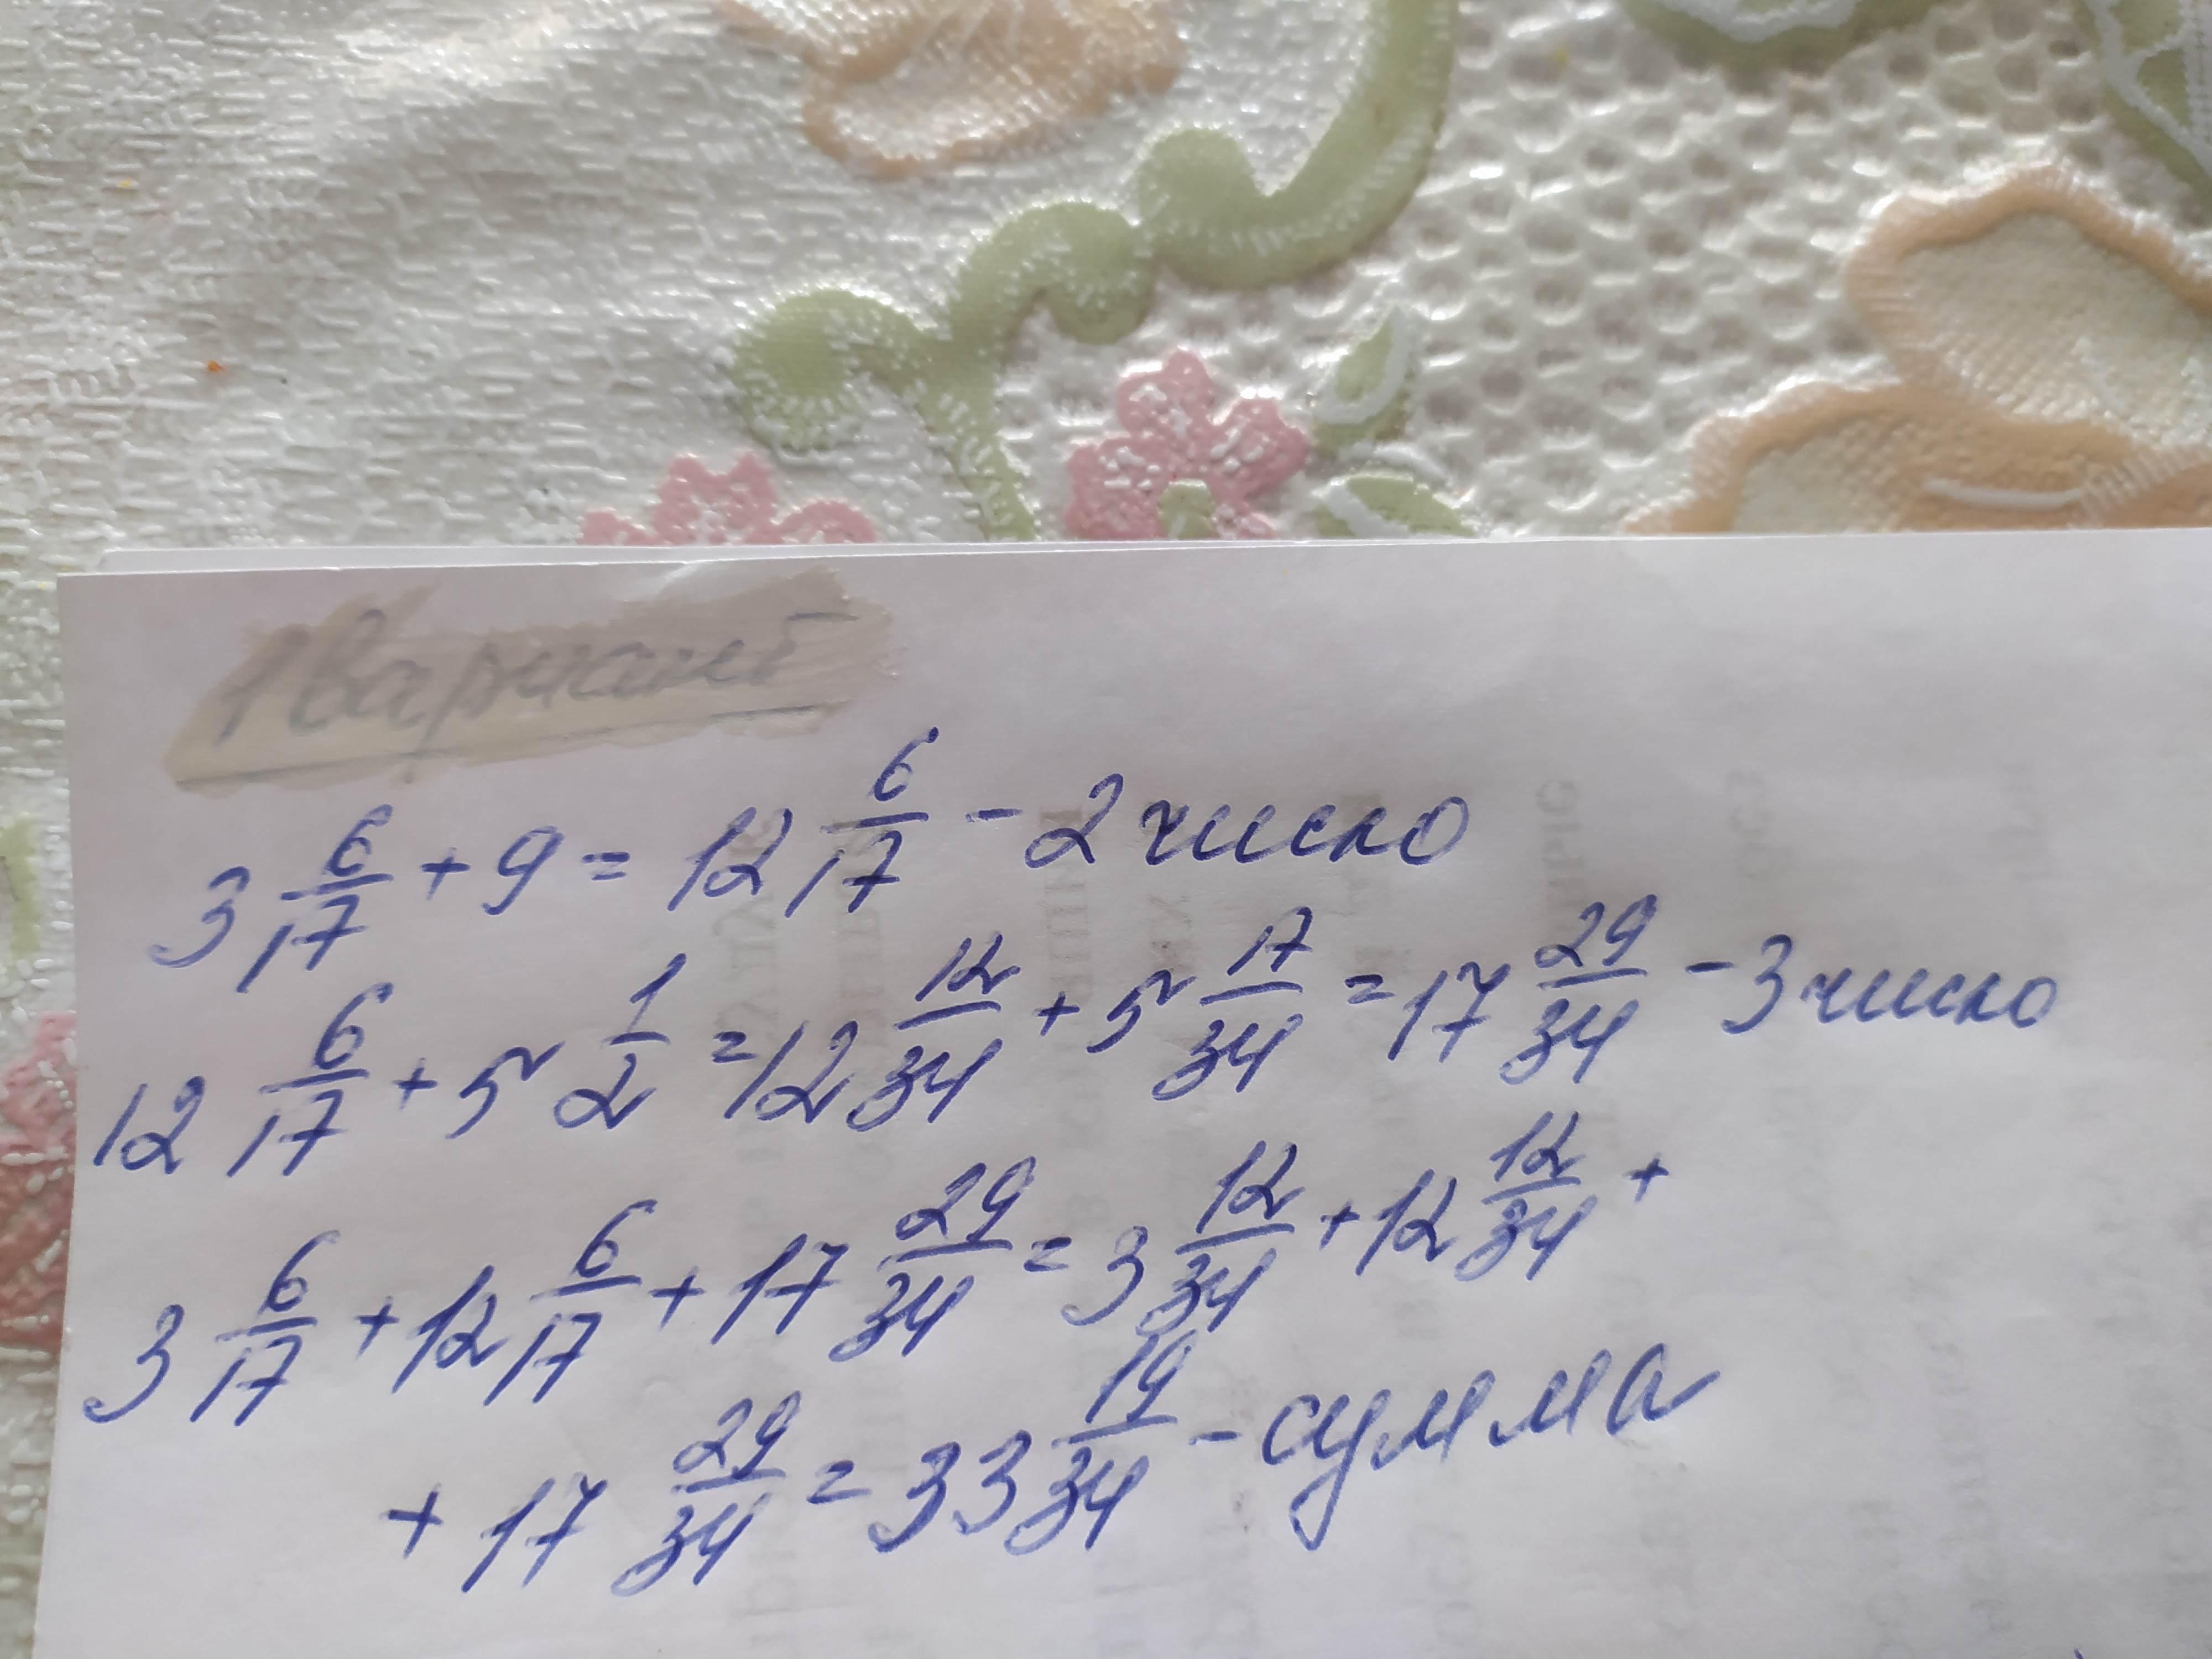 1 вариант
3 6/17 + 9 = 12 6/17 - 2 число
12 6/17 + 5 1/2 = 12 12/34 + 5 17/34 = 17 29/34 - 3 число
3 6/17 + 12 6/17 + 17 29/34 = 3 12/34 + 12 12/34 +
+ 17 29/34 = 33 19/34 - сумма